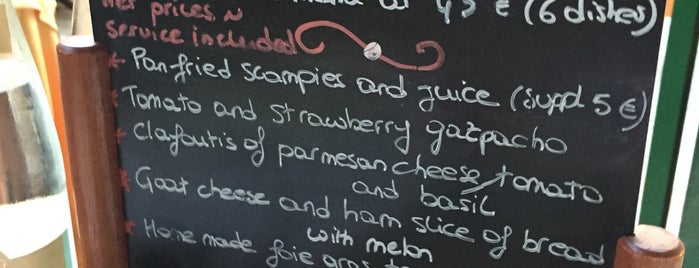 € (6 dishes)
Net prices ~
service included
Pan fried scampies and juice (suppl 5 €)
Tomato and strawberry gazpacho
Clafoutis of parmesan cheese, tomato
and basil
Goat cheese and ham slice of bread
with melon
Home made foie gras